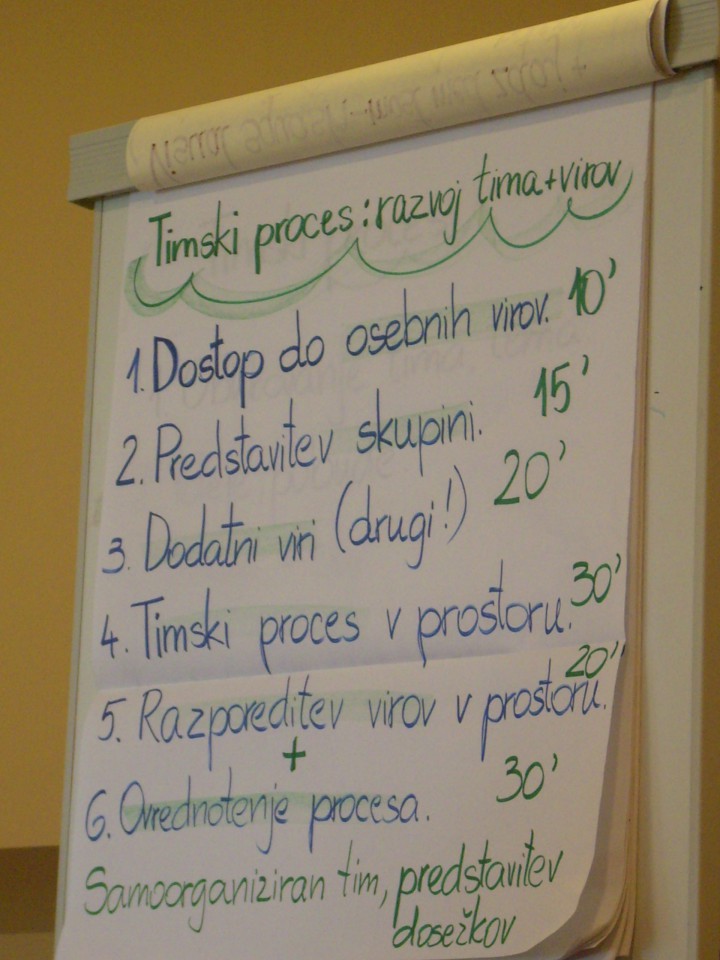 Timski proces: razvoj tima + virov
1. Dostop do osebnih virov. 10'
2. Predstavitev skupini. 15'
3. Dodatni viri (drugi!) 20'
4. Timski proces v prostoru. 30'
5. Razporeditev virov v prostoru. 20'
+
6. Ovrednotenje procesa. 30'
Samoorganiziran tim, predstavitev
dosežkov